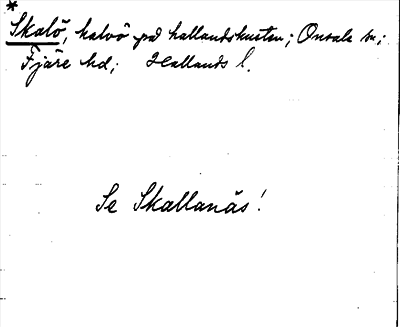 *
Skalö, halvö på hallandskusten; Onsala sn;
Fjäre hd; Hallands l.
Se Skallanäs!